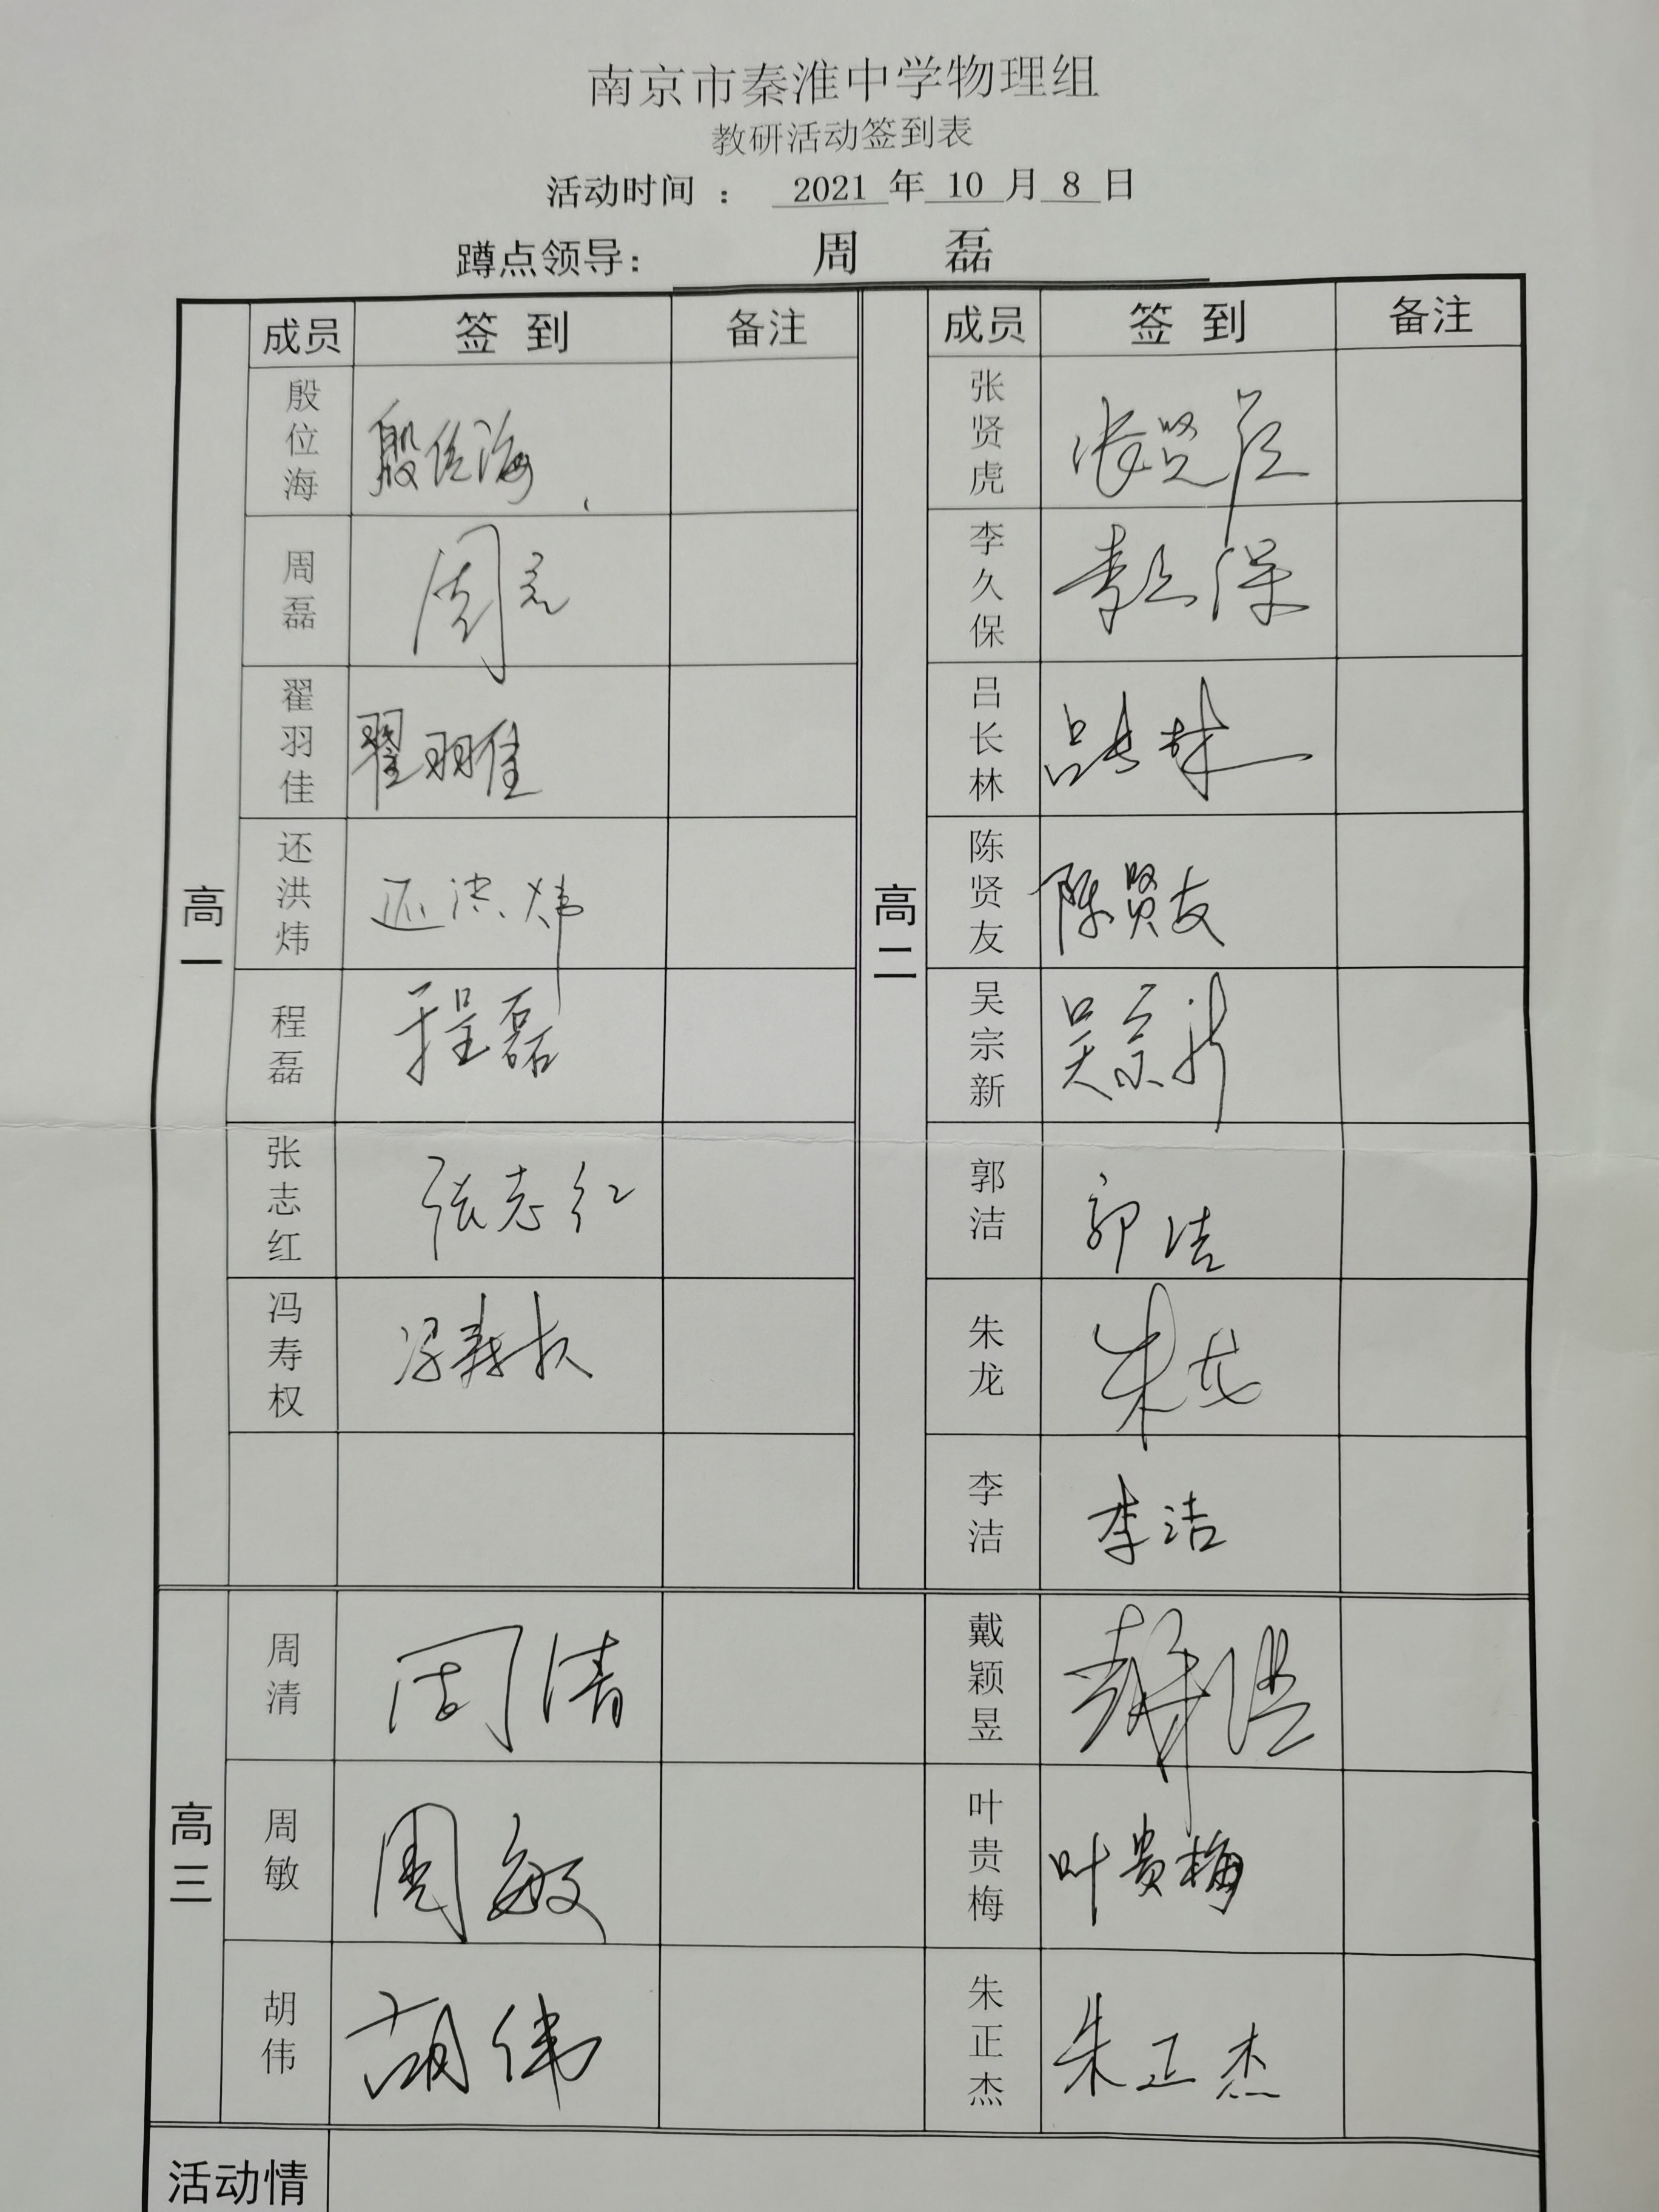 南京市秦淮中学物理组
教研活动签到表
活动时间 ： 2021 年 10 月 8 日
蹲点领导： 周 磊
成员 签 到 备注 成员 签 到 备注
高一
高二
殷位海 殷位海 张贤虎 张贤虎
周磊 周磊 李久保 李久保
翟羽佳 翟羽佳 吕长林 吕长林
还洪炜 还洪炜 陈贤友 陈贤友
程磊 程磊 吴宗新 吴宗新
张志红 张志红 郭洁 郭洁
冯寿权 冯寿权 朱龙 朱龙
李洁 李洁
高三
周清 周清 戴颖昱
周敏 周敏 叶贵梅 叶贵梅
胡伟 胡伟 朱正杰 朱正杰
活动情